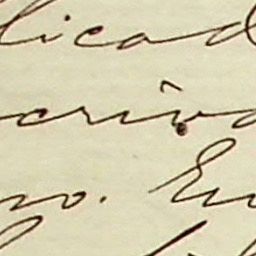 licad
criva
no. Eu